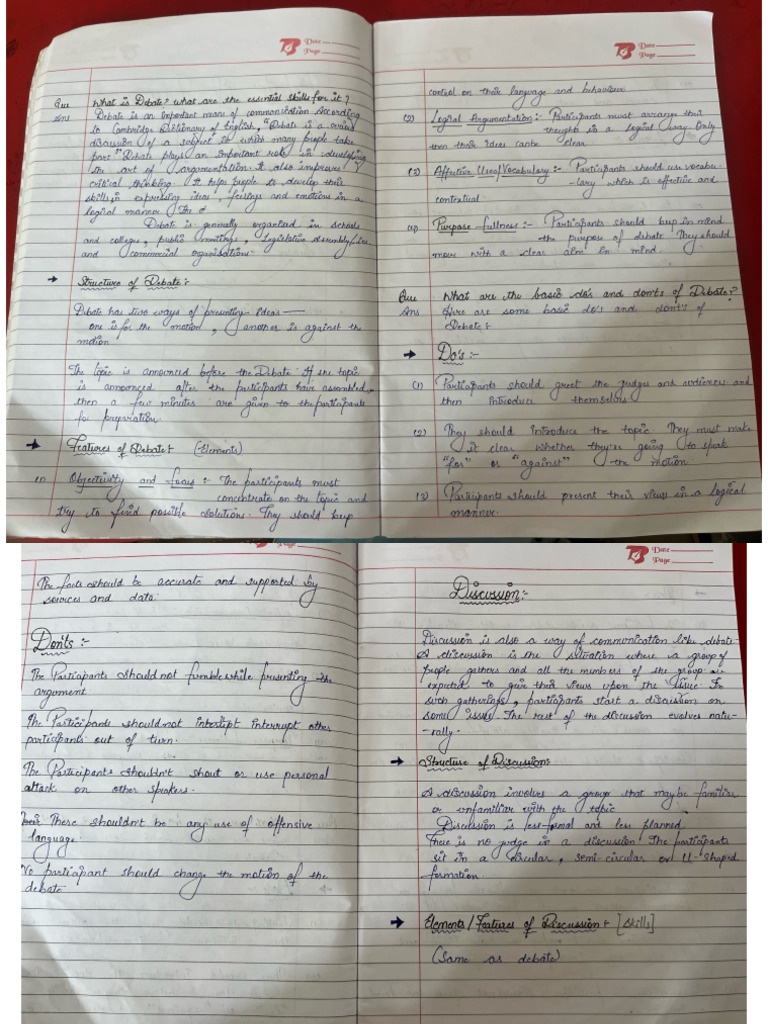 Date
Page
Que What is Debate? what are the essential skills for it?
Ans Debate is an Important mean of communication According
to Cambridge Dictionary of English, "Debate is a
discussion of a subject in which many people take
part" Debate plays an important role in developing
the art of argumentation. It also improves
critical thinking. It helps people to develop their
skills in expressing ideas, feelings and emotions in a
logical manner. The
Debate is generally organised in schools
and colleges, public meetings, Legislative Assembly/
and commercial organisations.
→ Structure of Debate:
Debate has two ways of presenting Ideas—
one is for the motion, another is against the
motion
The topic is announced before the Debate. If the topic
is announced after the participants have assembled,
then a few minutes are given to the participants
for preparation.
→ Features of Debate:- (Elements)
(1) Objectivity and focus:- The participants must
concentrate on the topic and
try to find possible solutions. They should keep
Date
Page
control on their language and behaviour
(2) Logical Argumentation:- Participants must arrange their
thoughts in a Logical way. Only
then their Ideas can be clear.
(3) Affective Uses/Vocabulary:- Participants should use vocabu-
-lary which is effective and
contextual
(4) Purpose fullness:- Participants should keep in mind
the purpose of debate. They should
move with a clear aim in mind.
Que What are the basic do's and don'ts of Debate?
Ans Here are some basic do's and dont's of
Debate:
→ Do's:-
(1) Participants should greet the judges and audiences and
then introduce themselves.
(2) They should introduce the topic. They must make
it clear whether they're going to speak
"for" or "against" the motion.
(3) Participants should present their views in a logical
manner.
Page
The facts should be accurate and supported by
sources and data.
Don'ts:-
The Participants should not fumble while presenting the
argument
The Participants should not interrupt other
participants out of turn.
The Participants shouldn't shout or use personal
attack on other speakers.
There shouldn't be any use of offensive
language.
No participant should change the motion of the
debate
Date
Page
Discussion:-
Discussion is also a way of communication like debate.
A discussion is the situation where a group of
people gathers and all the members of the group are
expected to give their views upon the issue. In
such gatherings, participants start a discussion on
some issue. The rest of the discussion evolves natu-
-rally.
→ Structure of Discussion:
A discussion involves a group that may be familiar
or unfamiliar with the topic
Discussion is less formal and less planned.
There is no judge in a discussion. The participants
sit in a circular, semi-circular or U-Shaped
formation.
→ Elements/Features of Discussion:- [Skills]
(Same as debate)